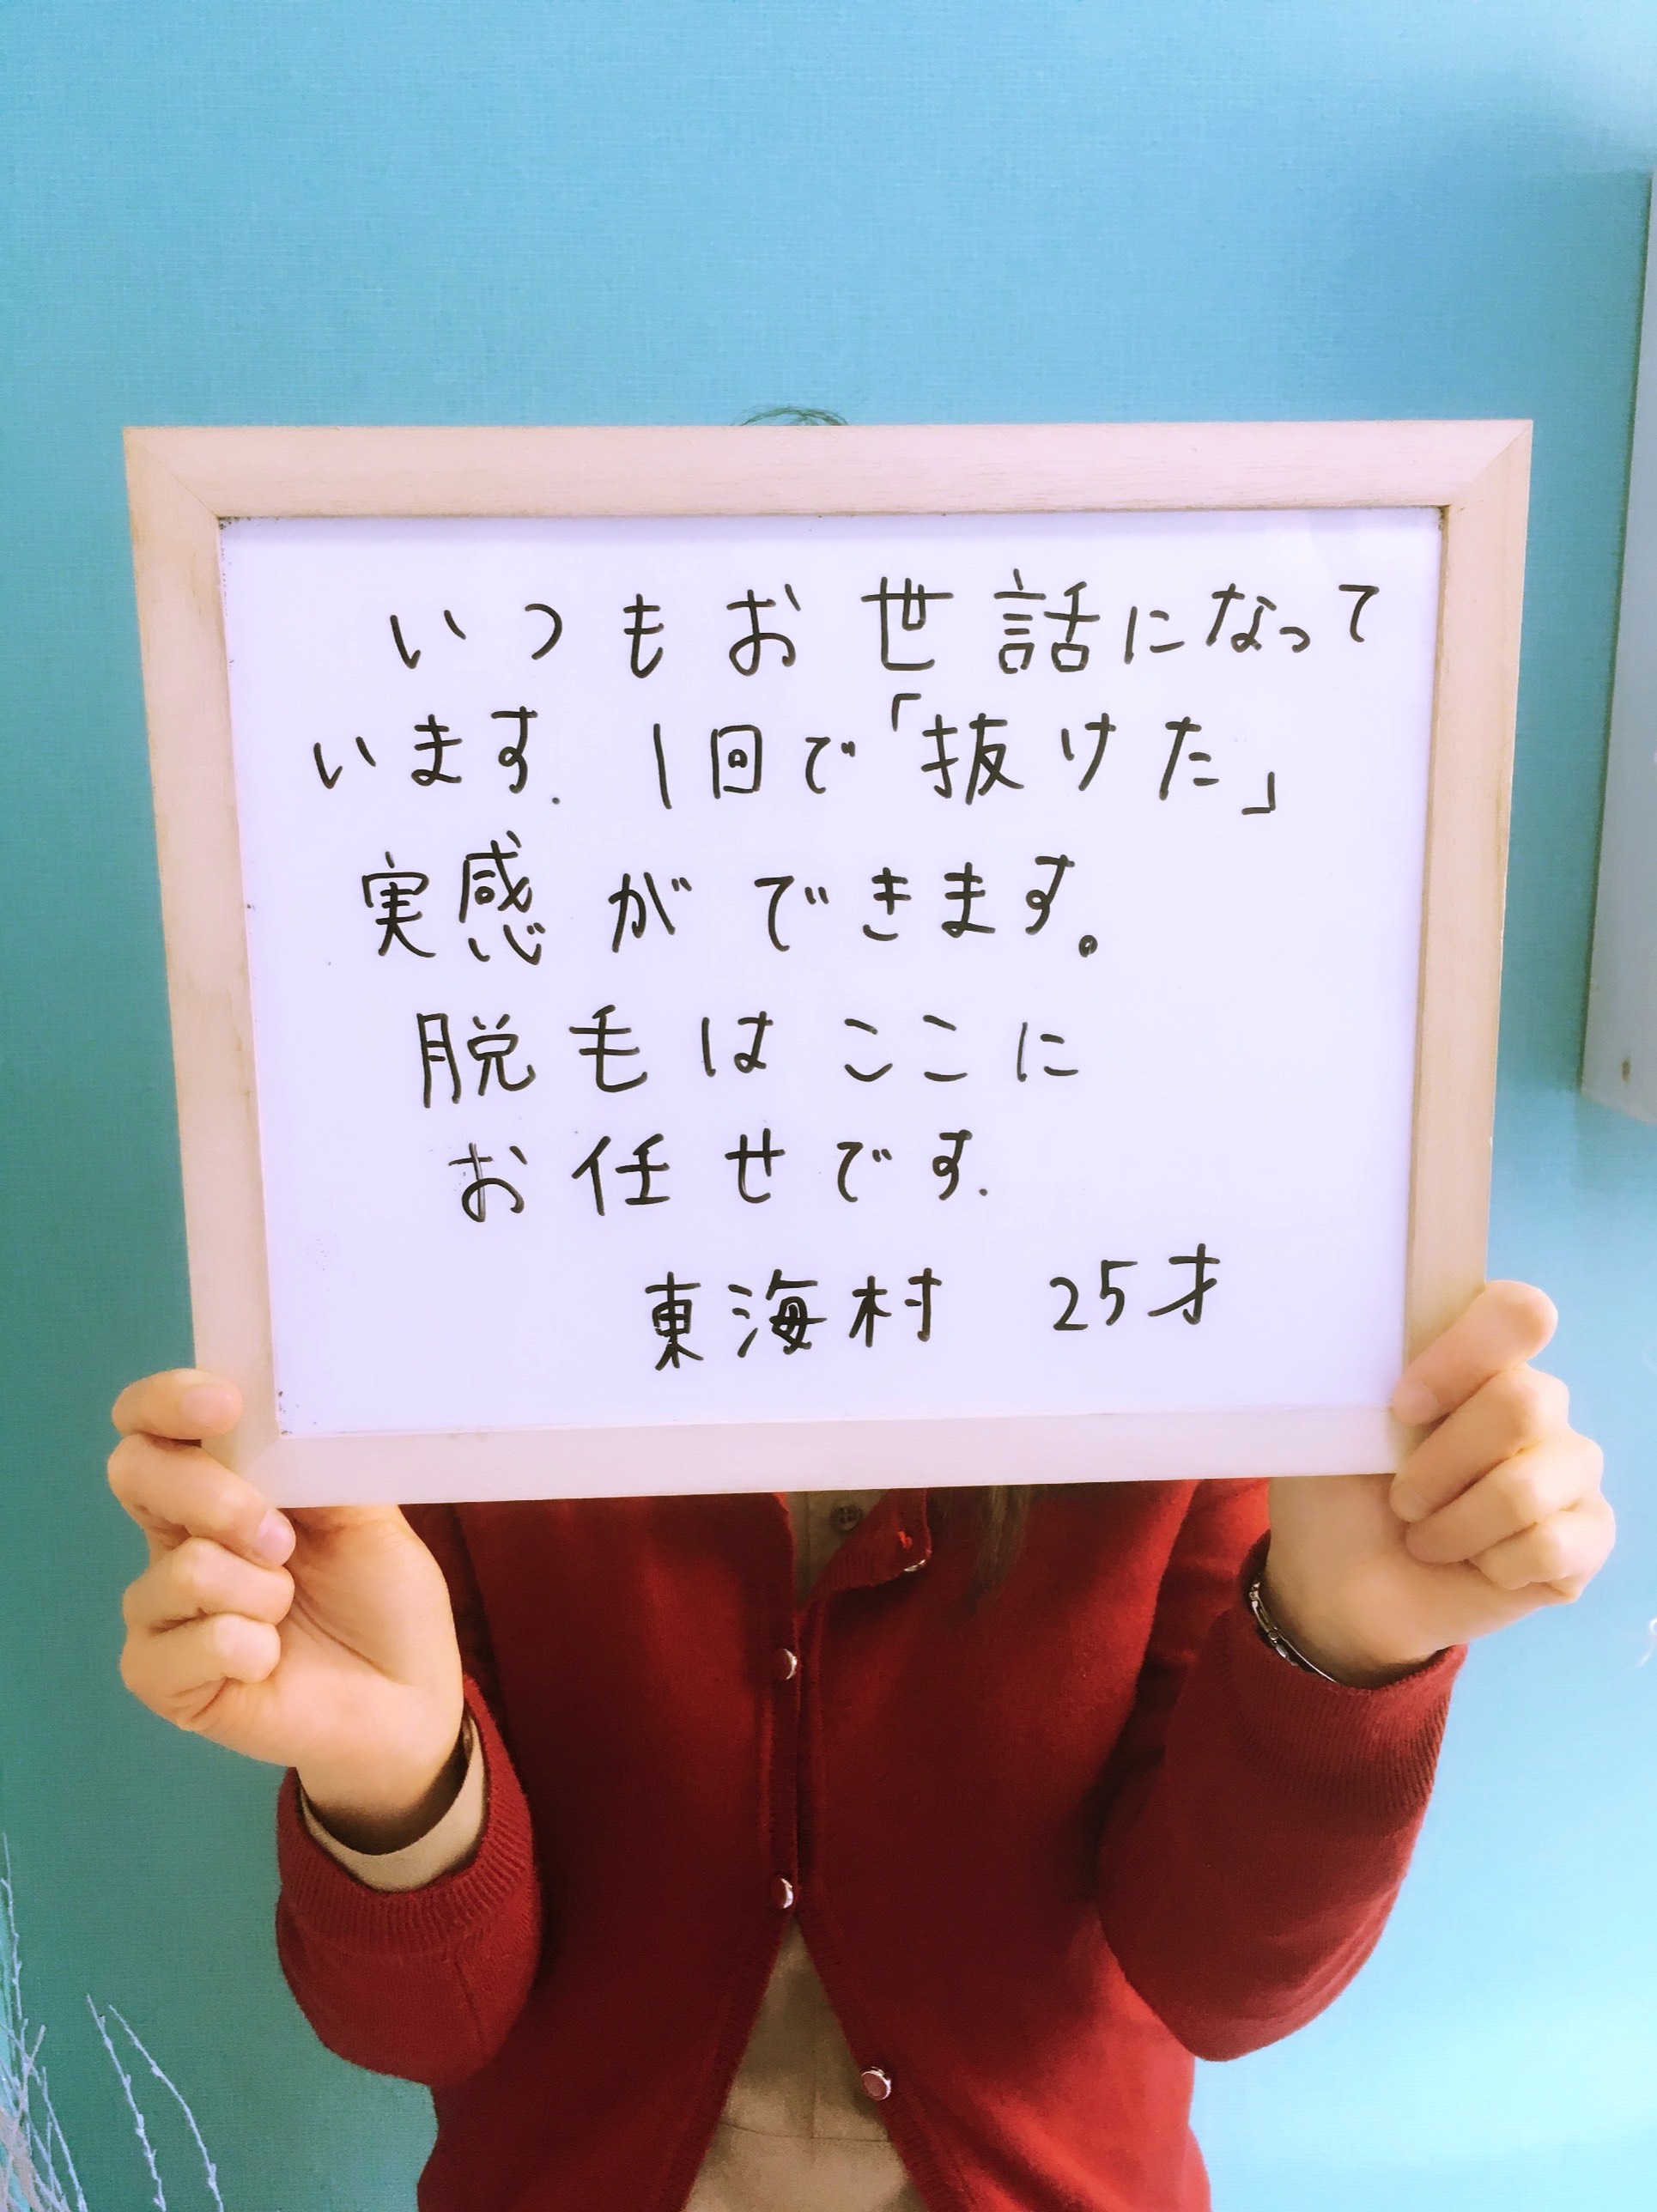 いつもお世話になって
います. 1回で「抜けた」
実感ができます。
脱毛はここに
お任せです.
東海村 25才